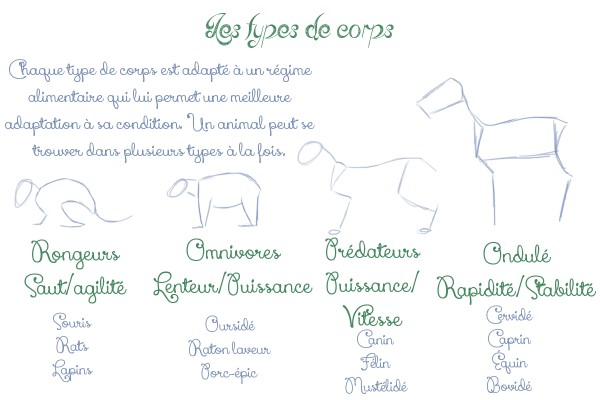 Les types de corps
Chaque type de corps est adapté à un régime
alimentaire qui lui permet une meilleure
adaptation à sa condition. Un animal peut se
trouver dans plusieurs types à la fois.
Rongeurs
Saut/agilité
Souris
Rats
Lapins
Omnivores
Lenteur/Puissance
Oursidé
Raton laveur
Porc-épic
Prédateurs
Puissance/
Vitesse
Canin
Félin
Mustélidé
Ondulé
Rapidité/Stabilité
Cervidé
Caprin
Équin
Bovidé